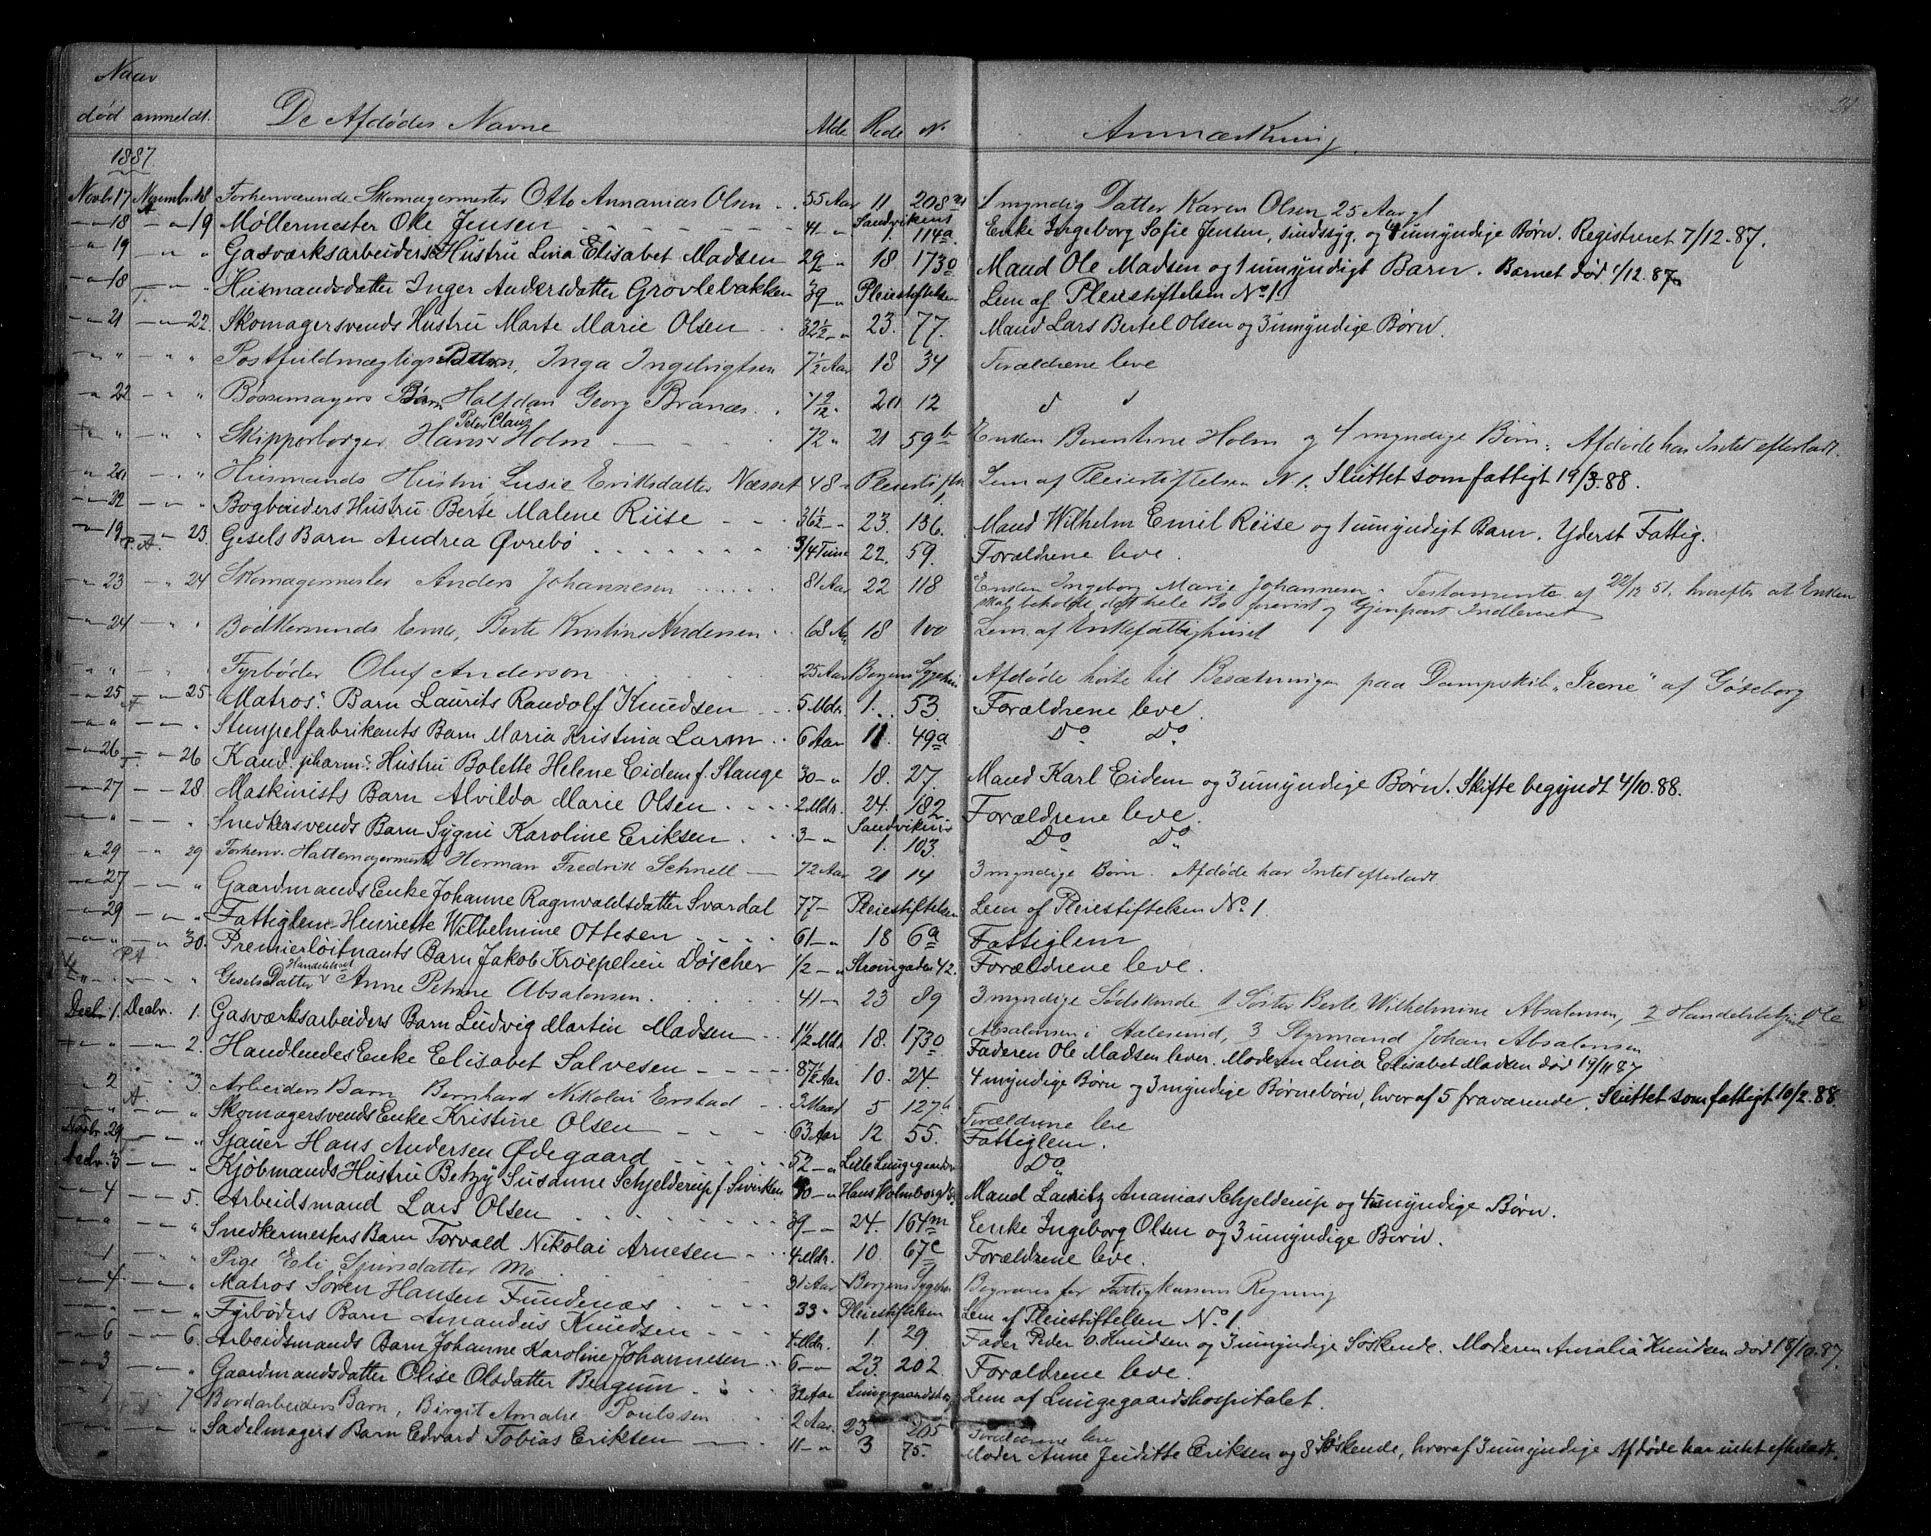 Naar
død anmeldt. De Afdødes Navne Alder Rode No Anmærkning 21
1887
Novbr 17 Novembr. 18 Forhenværende Skomagermester Otto Annanias Olsen 55 Aar 11 208 1 myndig Datter Karen Olsen 25 Aar gl
-"- 18 -"- 19 Møllermester Oke Jensen 41 -"- Sandvikens 1. 114a Enke Ingeborg Sofie Jensen, sindssyg. og 4 umyndige Børn. Registreret 7/12-87.
-"- 19 -"- " Gasværksarbeiders Hustru Lina Elisabet Madsen 29 -"- 18 173 Mand Ole Madsen og 1 umyndigt Barn. Barnet død 1/12.87
-"- 18 -"- " Husmandsdatter Inger Andersdatter Grovlebakken 39 -"- Pleiestiftelsen Lem af Pleiestiftelsen No 1.
-"- 21 -"- 22 Skomagersvends Hustru Marte Marie Olsen 32 1/2 -"- 23. 77. Mand Lars Bertel Olsen og 3 umyndige Børn.
-"- " -"- " Postfuldmægtigs Datter, Inga Ingebrigtsen 7 1/2 Aar 18 34 Forældrene leve
-"- 22 -"- " Bøssemagers Børn Halfdan Georg Branæs 20 12
-"- " -"- " Skipperborger Hans Peter Claus Holm 72 " 21 59b Enken Berentine Holm og 4 myndige Børn. Afdøde har Intet efterladt.
-"- 20 -"- " Husmands Hustru Lusie Eriksdatter Næsset 48 " Pleiestiftn Lem af Pleiestiftelsen N 1. Sluttet som fattigt 19/3-88.
-"- 22 -"- " Bogbinders Hustru Berte Malene Riise 36 1/2 -"- 23. 136. Mand Wilhelm Emil Riise og 1 umyndigt Barn. Yderst Fattig.
-"- 19 P.A. 23. Gesels Barn Andrea Øvrebø 3/4 Time 22. 59. Forældrene leve.
-"- 23 -"- 24 Skomagermester Anders Johannesen 81 Aar 22 118 Enken Ingeborg Marie Johannesen. Testamente af 22/12 51. hvorefter at Enken
skal beholde det hele Bo forevist og Gjenpart Indleveret
-"- 24 -"- " Bødkersvends Enke, Berte Kristine Andersen 68 Aar 18 100 Lem af Enkefattighuset
-"- " -"- " Fyrbøder Oluf Anderson 25 Aar Bergens Sygehus Afdøde hørte til Besætningen paa Dampskib „Irene" af Göteborg
-"- 25 -"- 25 Matros: Barn Laurits Randolf Knudsen 5 Mdr. 1. 53. Forældrene leve.
-"- " -"- " Stempelfabrikants Barn Maria Kristina Larm 6 Aar 11. 49a Do Do
-"- 26 -"- 26 Kand. pharm: Hustru Bolette Helene Eidem f. Stange 30 -"- 18. 27. Mand Karl Eidem og 3 umyndige Børn. Skifte begyndt 4/10.88.
-"- 27 -"- 28 Maskinists Barn Alvilda Marie Olsen 2 Mdr. 24. 182 Forældrene leve.
-"- " -"- " Snedkersvends Barn Sygni Karoline Eriksen 3 -"- Sandvikens 1. 103. Do Do
-"- 29 -"- 29 Forhenv. Hattemagermester Herman Fredrik Schnell 72 Aar 21 14 3 myndige Børn. Afdøde har Intet efterladt.
-"- 27 -"- " Gaardmands Enke Johanne Ragnvaldsdatter Svardal 77 - Pleiestiftelsen Lem af Pleiestiftelsen No 1.
-"- 29 -"- " Fattiglem Henriette Wilhelmine Ottesen 61 -"- 18 6a Fattiglem
-"- " P.A. 30. Premierløitnants Barn Jakob Kroepelien Döscher 1/2 -"- Strømgaden 42. Forældrene leve.
-"- " -"- " Gesels Datter Handelsbet Anne Petrine Absalonsen 41 -"- 23 89 3 myndige Sødskende 1 Søster Berte Wilhelmine Absalonsen, 2 Handelsbetjent Ole
Absalonsen i Aalesund, 3 Styrmand Johan Absalonsen
Decbr. 1. Decbr. 1. Gasværksarbeiders Barn Ludvig Martin Madsen 1 1/2 Mdr 18. 173 Faderen Ole Madsen lever. Moderen Lina Elisabet Madsen død 19/11 87
-"- " -"- 2. Handlendes Enke Elisabet Salvesen 87 1/2 Aar 10. 24. 4 myndige Børn og 3 myndige Børnebørn, hvoraf 5 fraværende. Sluttet som fattigt 10/2.88
-"- 2 -"- 3. Arbeiders Barn Bernhard Nikolai Erstad 3 Maand 5 127b Forældrene leve
-"- " -"- " Skomagersvends Enke Kristine Olsen 63 Aar 12 55. Fattiglem.
Novbr. 29 -"- " Sjauer Hans Andersen Ødegaard 52 -"- Lille Lungegaarden Do
Decbr. 3 -"- " Kjøbmands Hustru Betzy Susanne Schjelderup f. 30 -"- Hans Holmboegd Mand Lauritz Ananias Schjelderup og 4 umyndige Børn.
-"- 4 -"- 5. Arbeidsmand Lars Olsen 39 -"- 24. 164m Enke Ingeborg Olsen og 3 umyndige Børn.
-"- " -"- " Snedkermesters Barn Torvald Nikolai Arnesen 4 Mdr. 10 67c Forældrene leve.
-"- 1 -"- " Pige Eli Sjursdatter Mo 31 Aar Bergens Sygehus Begraves for Fattigkassens Regning
-"- 4 -"- " Matros Søren Hansen Fundenæs 33 " Pleiestiftelsen Lem af Pleiestiftelsen No 1.
-"- " -"- " Fyrbøders Barn Amandus Knudsen 4 Mdr. 1 29. Fader Peder O. Knudsen og 3 umyndige Søskende. Moderen Amalia Knudsen død 18/10.87.
-"- 6 -"- 6. Arbeidsmands Barn Johanne Karoline Johannesen 6 -"- 23. 202. Forældrene leve.
-"- 3 -"- " Gaardmandsdatter Olise Olsdatter Bergum 32 Aar Lungegaardshosp Lem af Lungegaardshospitalet.
-"- 7 7 Bordarbeiders Barn, Birgit Amalie Poulssen 2 Aar. 23 205 Forældrene leve
-"- " Sadelmagers Barn Edvard Tobias Eriksen 11 -"- 3 75. Moder Anne Juditte Eriksen og 8 Søskende, hvoraf 3 umyndige Afdøde har intet efterladt.